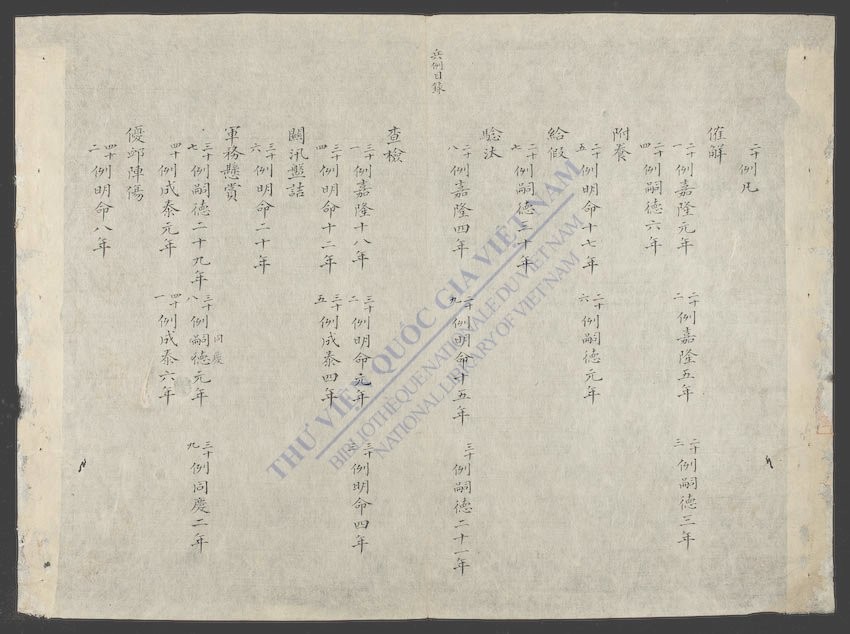 二十例凡
催解
二十一例嘉隆元年 二十二例嘉隆五年 二十三例嗣德三年
二十四例嗣德六年
附養
二十五例明命十七年 二十六例嗣德元年
給假
二十七例嗣德三十年
騐汰
二十八例嘉隆四年 二十九例明命十五年 三十例嗣德二十一年
兵例目錄
查檢
三十一例嘉隆十八年 三十二例明命元年 三十三例明命四年
三十四例明命十二年 三十五例成泰四年
關汛盤詰
三十六例明命二十年
軍務懸賞
同慶
三十七例嗣德二十九年 三十八例嗣德元年 三十九例同慶二年
四十例成泰元年 四十一例成泰六年
優卹陣傷
四十二例明命八年
THƯ VIỆN QUỐC GIA VIỆT NAM
BIBLIOTHÈQUE NATIONALE DU VIETNAM
NATIONAL LIBRARY OF VIETNAM